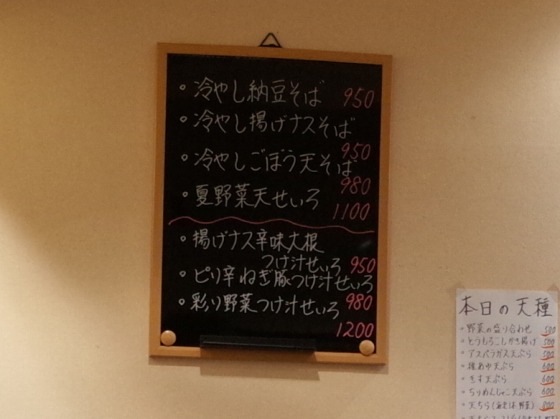 ・冷やし納豆そば 950
・冷やし揚げナスそば
950
・冷やしごぼう天そば
980
・夏野菜天せいろ
1100
・揚げナス辛味大根
つけ汁せいろ 950
・ピリ辛ねぎ豚つけ汁せいろ
980
・彩り野菜つけ汁せいろ
1200
本日の天種
・野菜の盛り合わせ 500
・とうもろこしかき揚げ 500
・アスパラガス天ぷら 500
・稚あゆ天ぷら 600
・きす天ぷら 600
・ちりめんじゃこ天ぷら 600